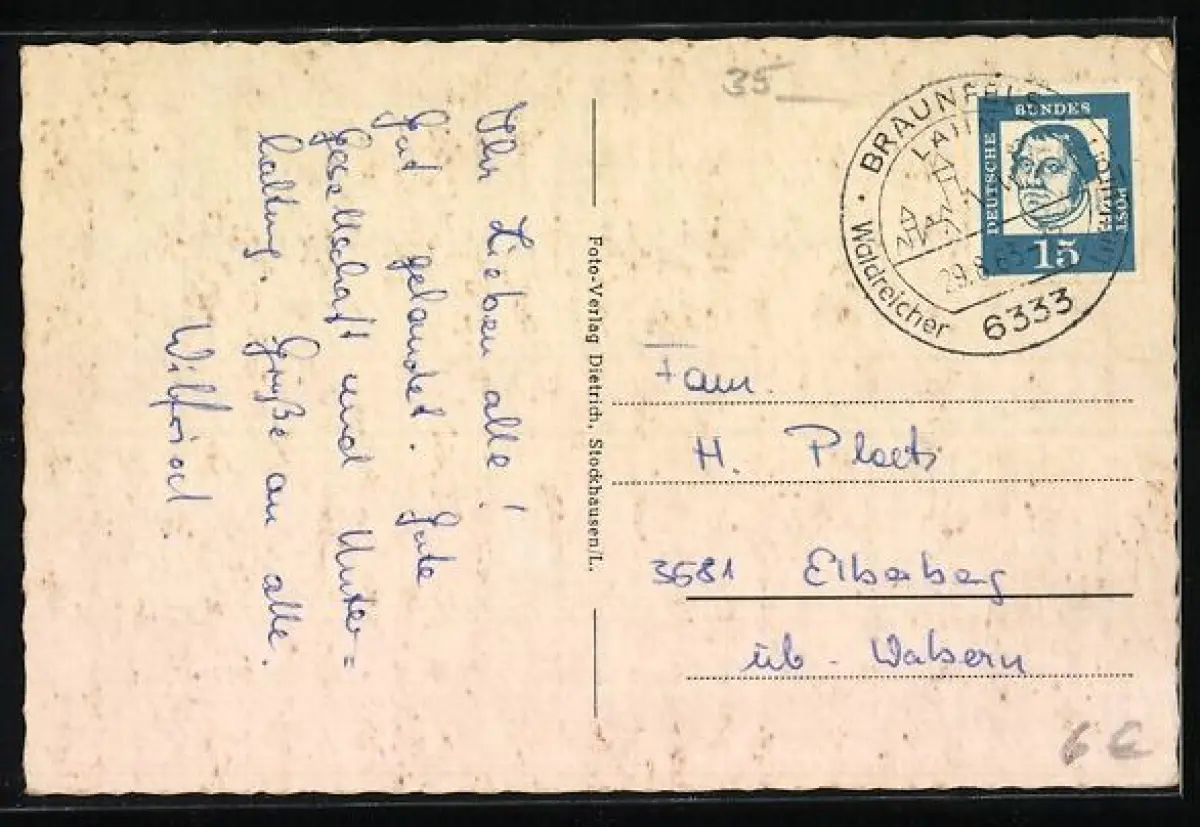 Ihr Lieben alle!
Gut gelandet. Gute
Gesellschaft und Unter=
haltung. Grüße an alle.
Wilfried
Foto-Verlag Dietrich, Stockhausen/L.
35
BRAUNFELS
LAHN
Waldreicher
29.8.63
6333
DEUTSCHE BUNDES POST
15
Fam.
H. Ploets
3581 Elberberg
üb. Wabern
6 €